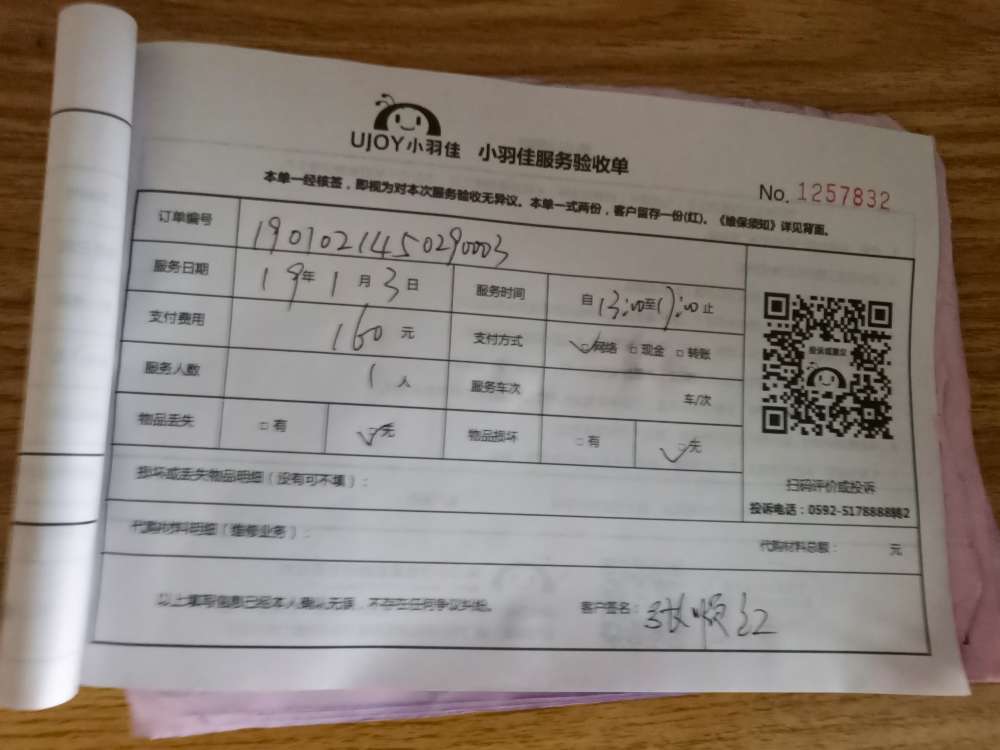 UJOY小羽佳 小羽佳服务验收单
No. 1257832
本单一经核签，即视为对本次服务验收无异议。本单一式两份，客户留存一份(红)。《维保须知》详见背面。
订单编号 1901021450290003
服务日期 19年1月3日 服务时间 自13:00至17:00止
支付费用 160元 支付方式 ☑网络 □现金 □转账
服务人数 1人 服务车次 车/次
物品丢失 □有 ☑无 物品损坏 □有 ☑无
扫码评价或投诉
投诉电话：0592-5178888转2
损坏或丢失物品明细（没有可不填）：
代购材料明细（维修业务）： 代购材料总额： 元
以上填写信息已经本人确认无误，不存在任何争议纠纷。 客户签名：张顺红